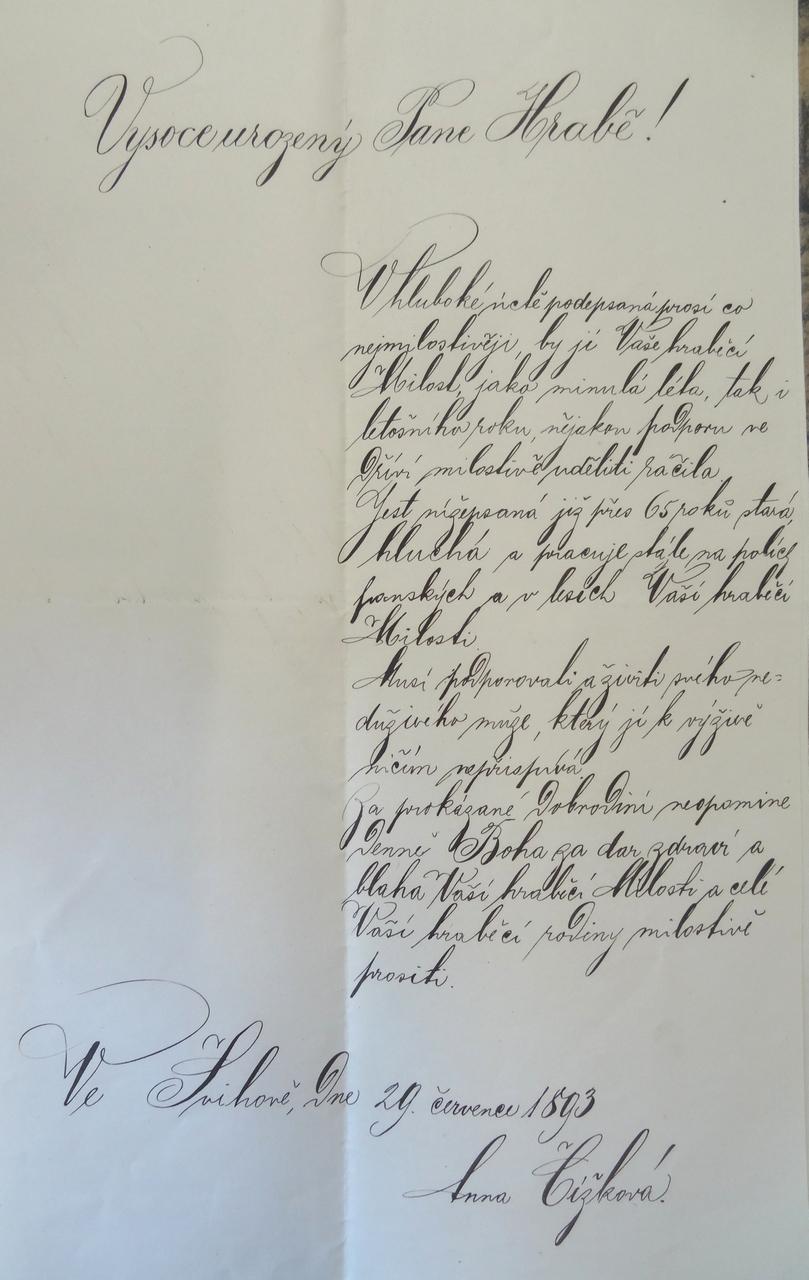 Vysoceurozený Pane Hrabě!
V hluboké úctě podepsaná prosí co
nejmilostivěji, by jí Vaše hraběčí
Milost, jako minulá léta, tak i
letošního roku, nějakou podporu ve
dříví milostivě uděliti ráčila.
Jest nížepsaná již přes 65 roků stará,
hluchá a pracuje stále na polích
panských a v lesích Vaší hraběčí
Milosti.
Musí podporovati a živiti svého ne=
duživého muže, který jí k výživě
ničím nepřispívá.
Za prokázané dobrodiní neopomine
denně Boha za dar zdraví a
blaha Vaší hraběčí Milosti a celé
Vaší hraběčí rodiny milostivě
prositi.
Ve Švihově, dne 29. července 1893
Anna Čížková.